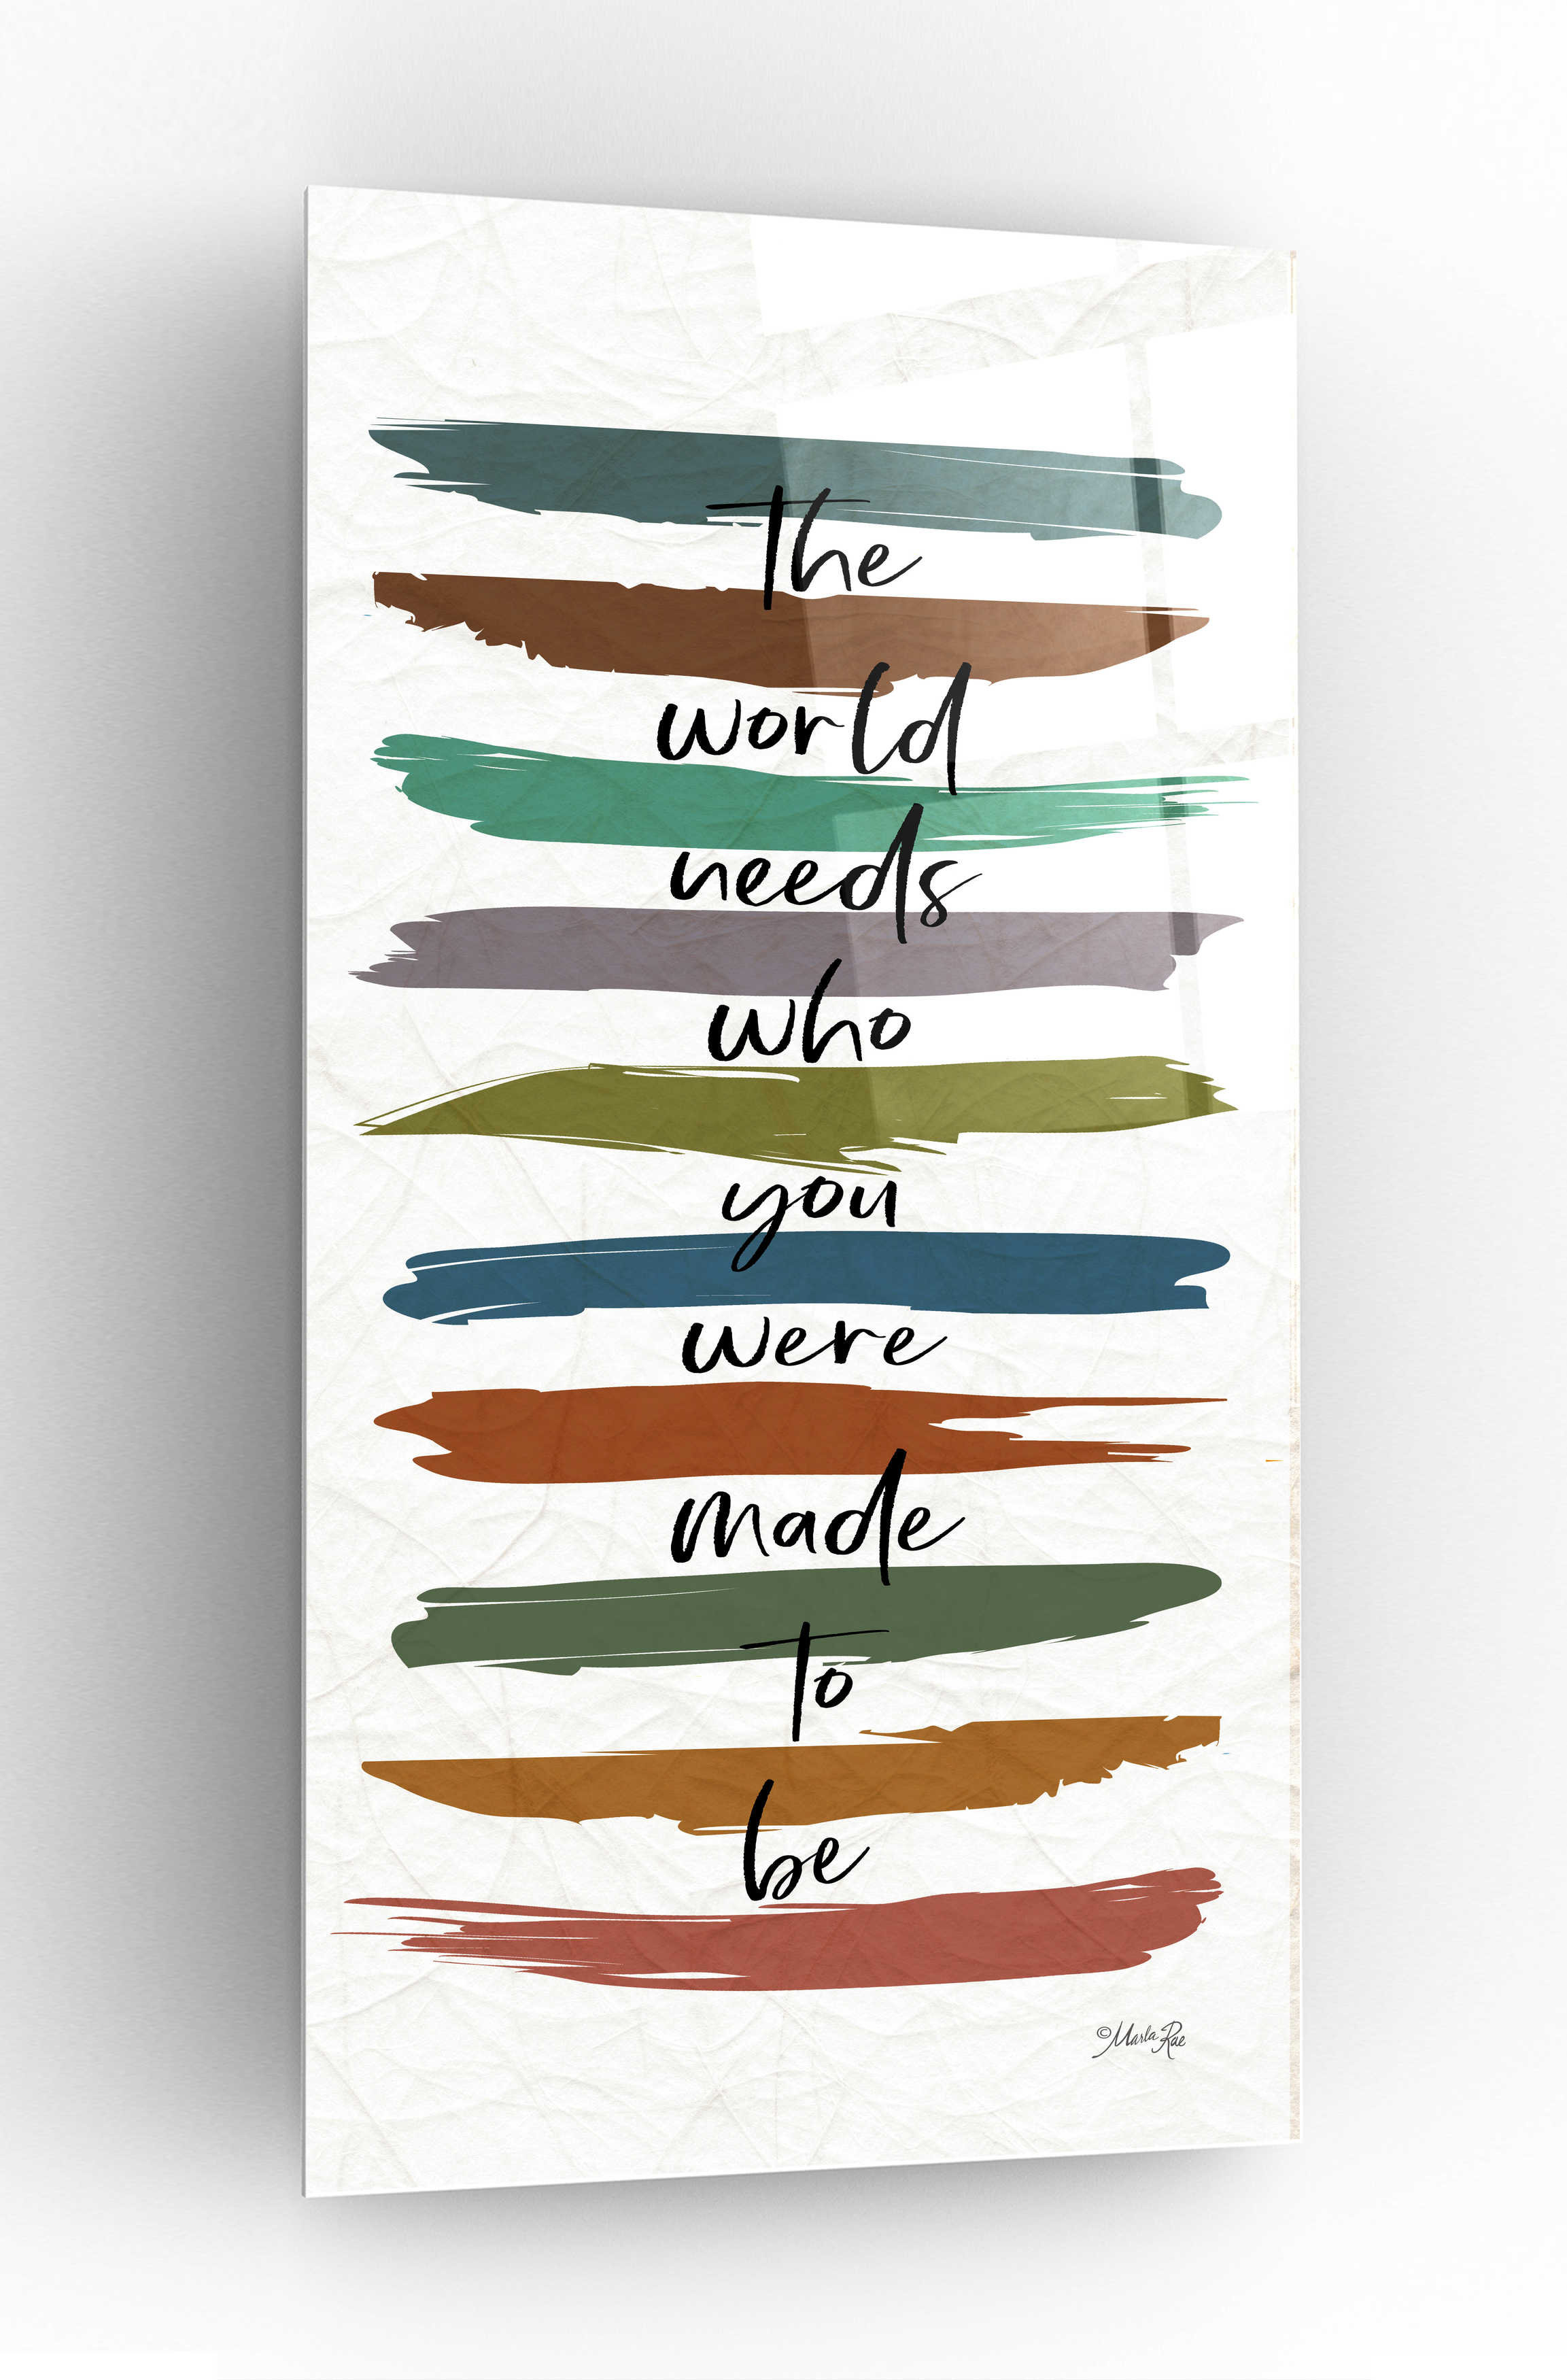 the
world
needs
who
you
were
made
to
be
©Marla Rae